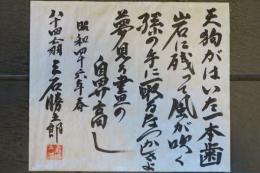 天狗がはいた一本歯
岩に残って風が吹く
孫の手に取るなつかしさよ
夢見る雲の
自界高し
昭和四十六年春
八十四翁 玉石勝五郎